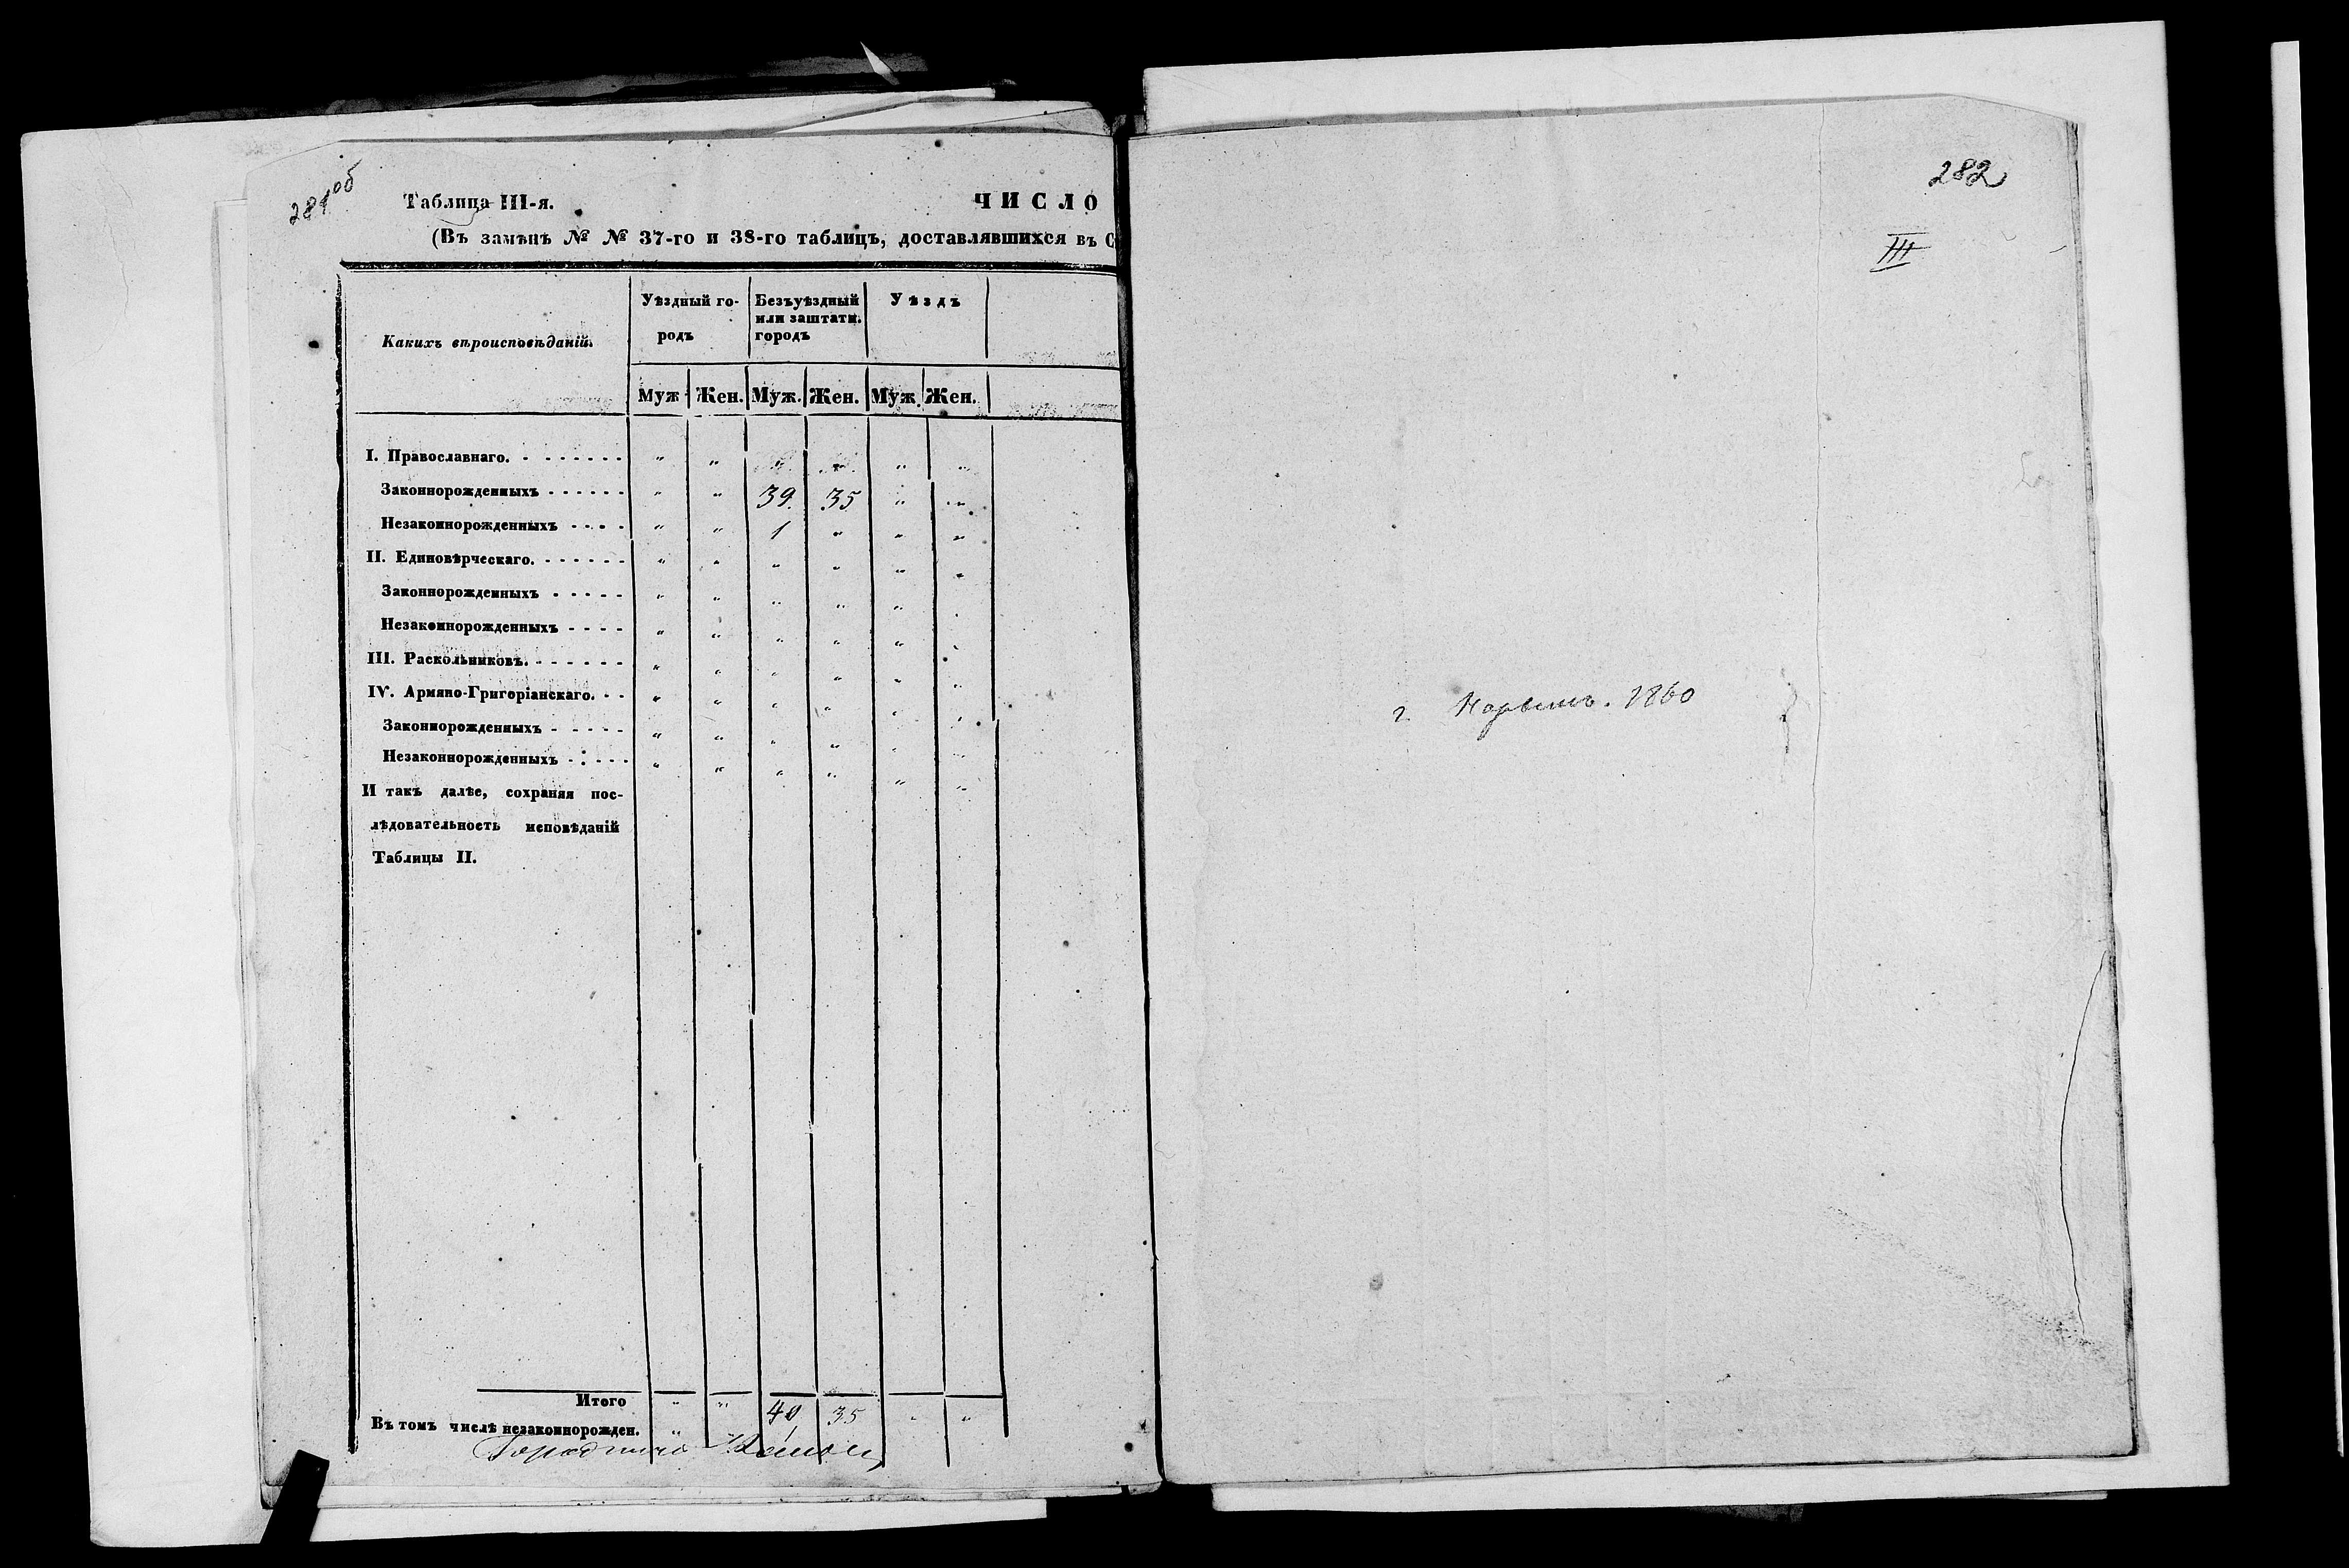 281об
Таблица III-я. ЧИСЛО
(Въ замѣнъ № № 37-го и 38-го таблицъ, доставлявшихся въ С
Какихъ вѣроисповѣданій. Уѣздный го- Безъуѣздный Уѣздъ
или заштатн.
родъ городъ
Муж. Жен. Муж. Жен. Муж. Жен.
I. Православнаго. - - - - - - - „ „ „ „ „ „
Законнорожденныхъ - - - - - - „ „ 39. 35 „ „
Незаконнорожденныхъ - - - - „ „ 1 „ „ „
II. Единовѣрческаго. - - - - - - „ „ „ „ „ „
Законнорожденныхъ - - - - - „ „ „ „ „ „
Незаконнорожденныхъ - - - - „ „ „ „ „ „
III. Раскольниковъ. - - - - - - „ „ „ „ „ „
IV. Армяно-Григоріанскаго. - - „ „ „ „ „ „
Законнорожденныхъ - - - - - „ „ „ „ „ „
Незаконнорожденныхъ - - - - „ „ „ „ „ „
И такъ далѣе, сохраняя пос-
лѣдовательность исповѣданій
Таблицы II.
Итого „ „ 40 35 „ „
Въ томъ числѣ незаконнорожден. „ „ 1
282
III
г. Нарымъ. 1860